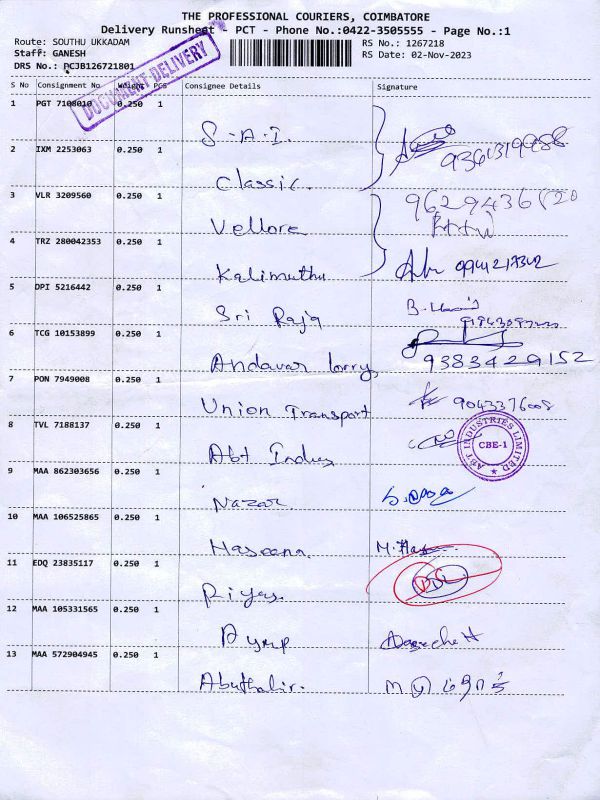 THE PROFESSIONAL COURIERS, COIMBATORE
Delivery Runsheet - PCT - Phone No.:0422-3505555 - Page No.:1
Route: SOUTHU UKKADAM
RS No.: 1267218
Staff: GANESH
RS Date: 02-Nov-2023
DRS No.: PCJB126721801
DOCUMENT DELIVERY
S No Consignment No. Weight PCS Consignee Details Signature
1 PGT 7108010 0.250 1
S.A.I.
2 IXM 2253063 0.250 1
9361319988
Classic.
3 VLR 3209560 0.250 1
Vellore
4 TRZ 280042353 0.250 1
Kalimuthu
5 DPI 5216442 0.250 1
Sri Raja
6 TCG 10153899 0.250 1
Andavar lorry 9383429152
7 PON 7949008 0.250 1
Union Transport 9043376008
8 TVL 7188137 0.250 1
ABT INDUSTRIES LIMITED
CBE-1
Abt Indus
9 MAA 862303656 0.250 1
Nazar
10 MAA 106525865 0.250 1
Haseena.
11 EDQ 23835117 0.250 1
Riyas
12 MAA 105331565 0.250 1
13 MAA 572904945 0.250 1
Abuthahir.